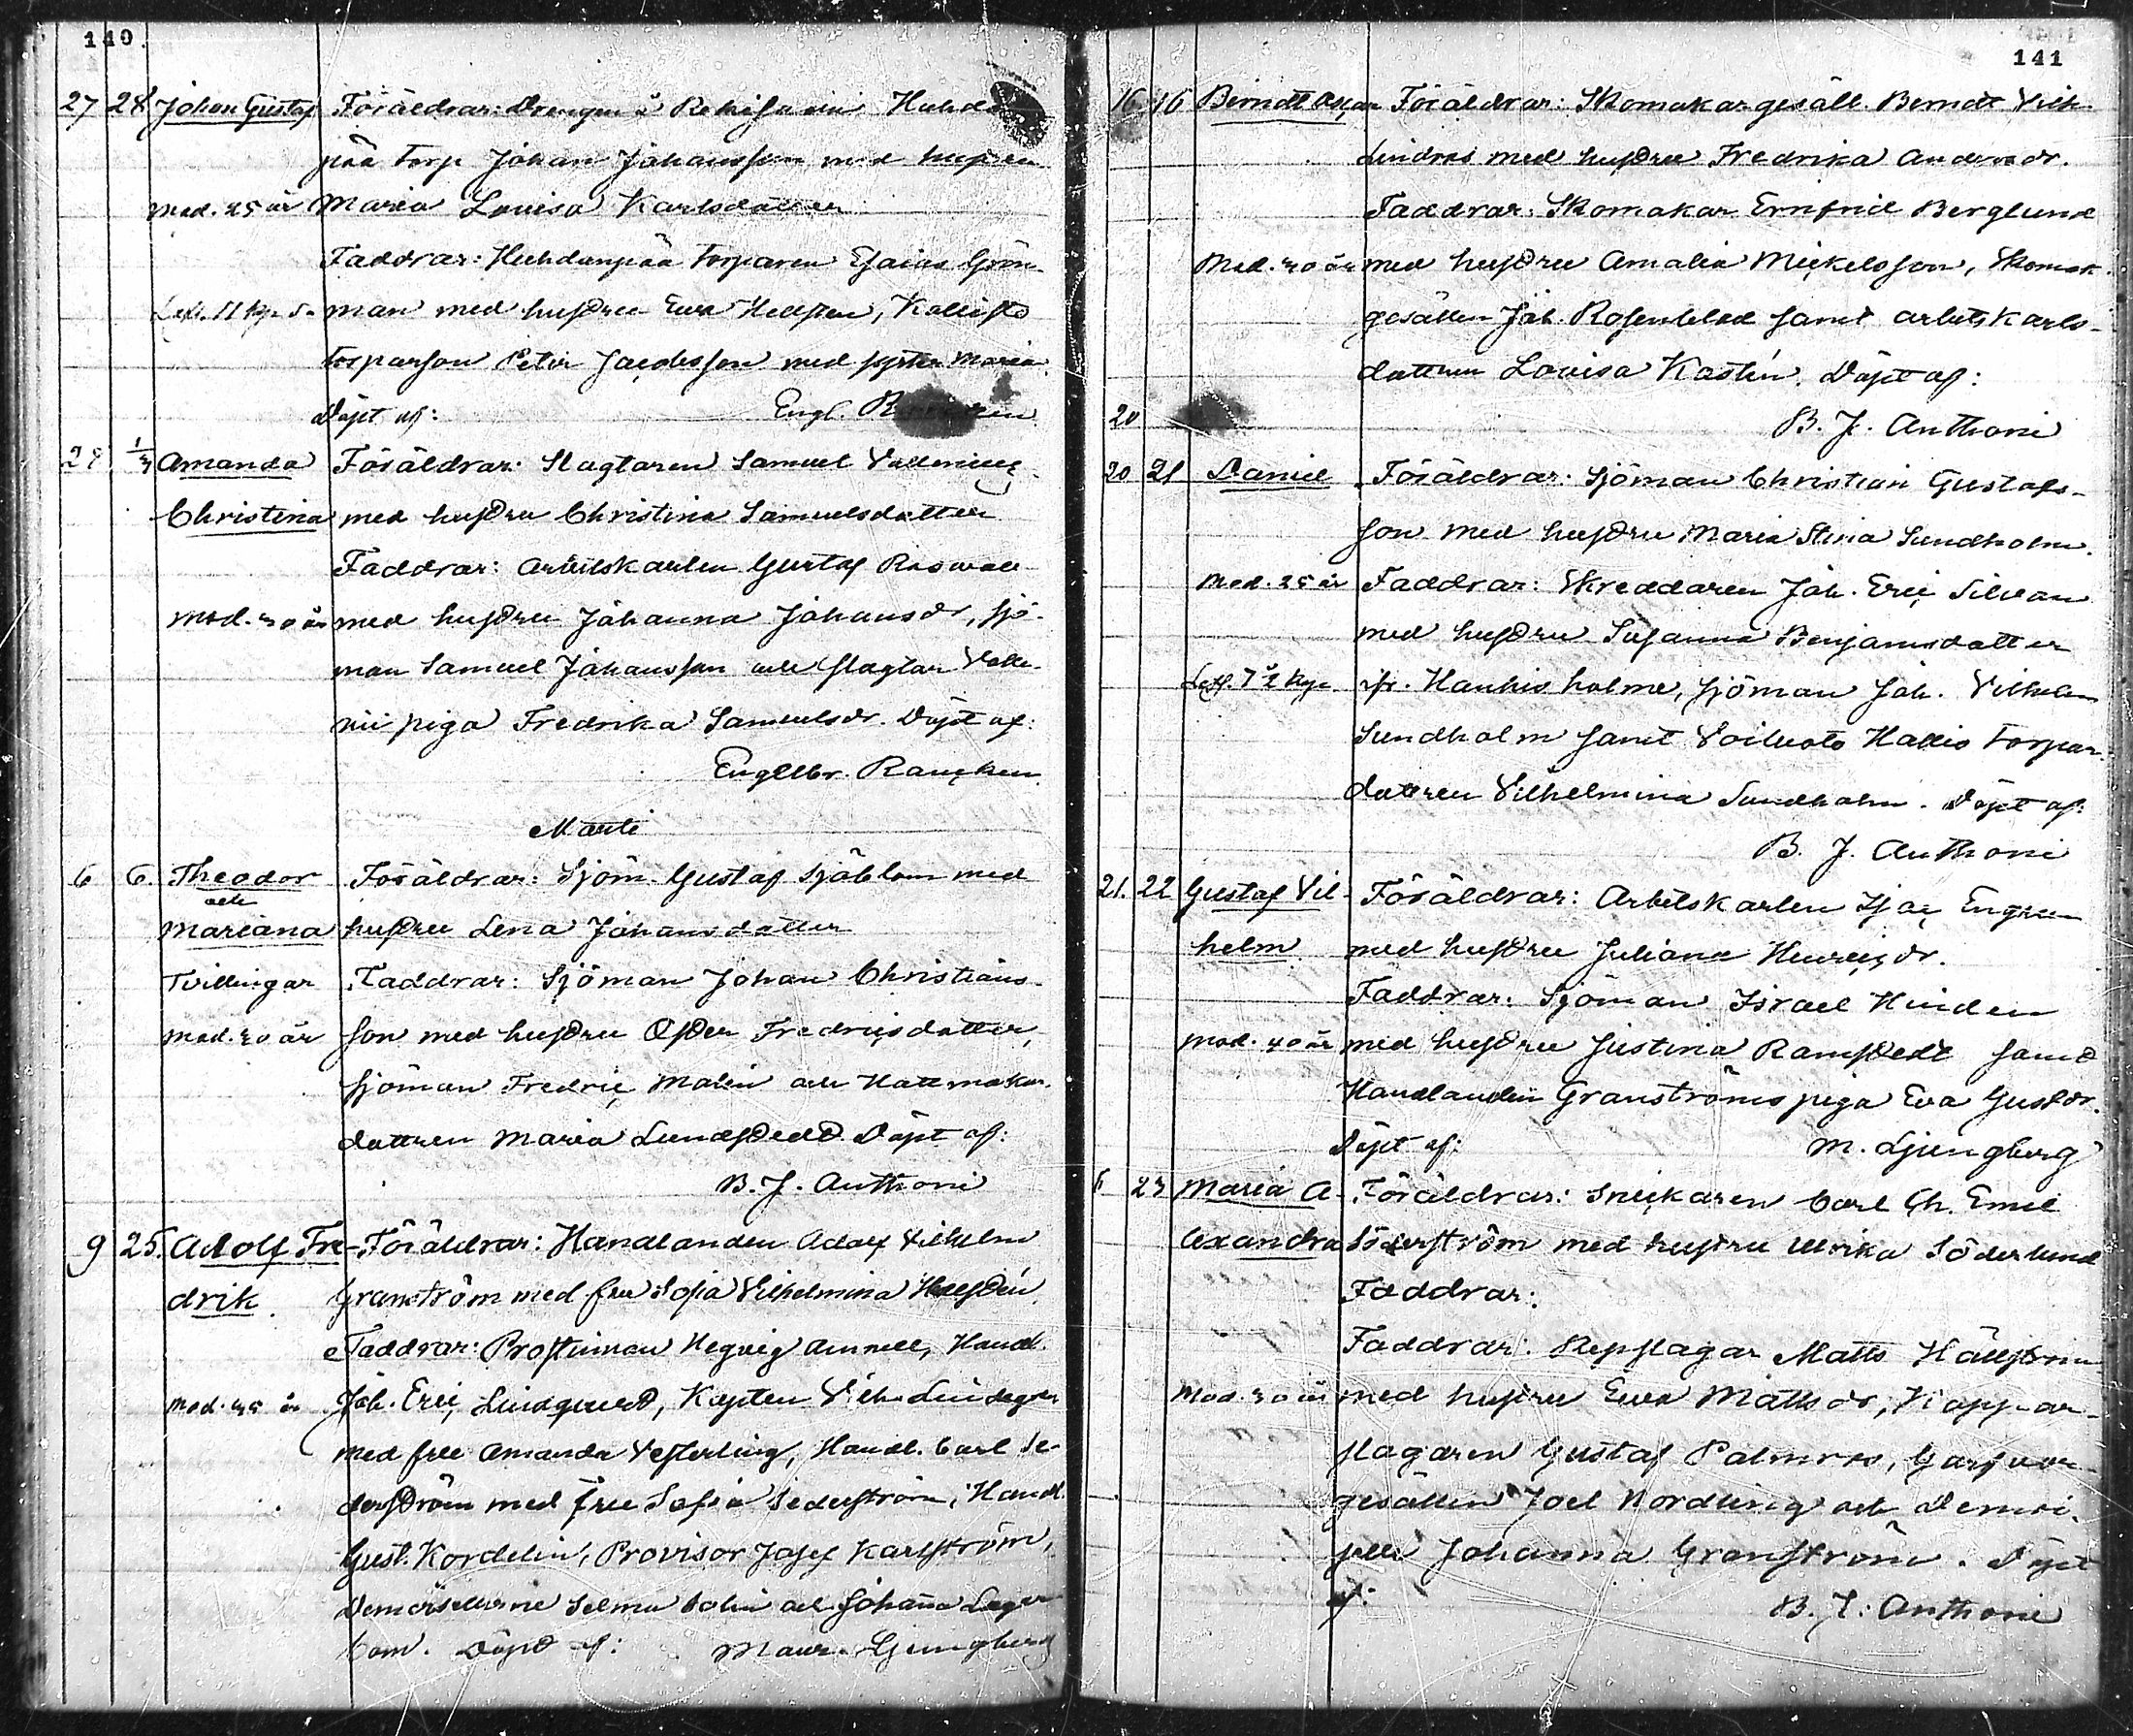 140.
27 28 Johan Gustaf Föräldrar: Drengen å
pää torp Johan Johansson med hustrun
Mod. 25 år Maria Lovisa Karlsdotter
Faddrar: Huhdanpää torparen Esaias Grön-
man med hustru Eva Hellsten,
torparson Petter Jacobsson med syster Maria.
Döpt af: Engl.
28 1/3 Amanda Föräldrar: Slagtaren Samuel
Christina med hustru Christina Samuelsdotter
Faddrar: Arbetskarlen Gustaf
Mod. 30 år med hustru Johanna Johansdr, sjö-
man Samuel Johansson och slagtar Valle-
nii piga Fredrika Samuelsdr. Döpt af:
Engelbr. Rancken
Marti
6 6. Theodor Föräldrar: Sjöm. Gustaf Sjöblom med
och
Mariana hustru Lena Johansdotter
Tvillingar Faddrar: Sjöman Johan Christians-
Mod. 30 år son med hustru Ester Fredricsdotter,
sjöman Fredric Malin och Hattmakar-
dottren Maria Lundstedt. Döpt af:
B. J. Anthoni
9 25. Adolf Fre- Föräldrar: Handlanden Adolf Vilhelm
drik. Granström med fru Sofia Vilhelmina Hellstén
Faddrar: Prostinnan Hegvig Amnell, Handl.
Mod. 35 år Joh. Eric Lindqvist, Kapten Vilh. Lindegren
med fru Amanda Vesterling, Handl. Carl Se-
derström med fru Sofia Sederström, Handl.
Gust. Kordelin, Provisor Josef Karlström,
Demoisellerne Selma Bolin och Johanna Lager-
bom. Döpt af: Maur. Ljungberg
141
16 16 Berndt Oscar Föräldrar: Skomakar gesäll Berndt Vilh.
Lindros med hustru Fredrika Andersdr.
Faddrar: Skomakar Ernfrid Berglund
Mod. 30 år med hustru Amalia Mickelsson, Skomak.
gesällen Joh. Rosenblad samt arbetskarls-
dottren Lovisa Kastén. Döpt af:
20 B. J. Anthoni
20 21 Daniel Föräldrar: Sjöman Christian Gustafs-
son med hustru Maria Stina Sundholm.
Mod. 25 år Faddrar: Skreddaren Joh. Eric Silvan
med hustru Susanna Benjaminsdotter
ifr. Haukis holme, sjöman Joh. Vilhelm
Sundholm samt Voiluoto Hallis torpar-
dottren Vilhelmina Sundholm. Döpt af:
B. J. Anthoni
21. 22 Gustaf Vil- Föräldrar: Arbetskarlen Isac Engren
helm. med hustru Juliana Henricsdr.
Faddrar: Sjöman Israel Hinden
Mod. 40 år med hustru Justina Ramstedt samt
Handlanden Granströms piga Eva Gustdr.
Döpt af: M. Ljungberg
6 23 Maria A- Föräldrar: Snickaren Carl Ch. Emil
lexandra Söderström med hustru Ulrika Söderlund
Faddrar:
Faddrar: Repslagar Matts Hällström
Mod. 30 år med hustru Eva Mattsdr, Koppar-
slagaren Gustaf Palmros, Garfvar-
gesällen Joel Nordling och Demoi-
selle Johanna Granström. Döpt
af: B. J. Anthoni